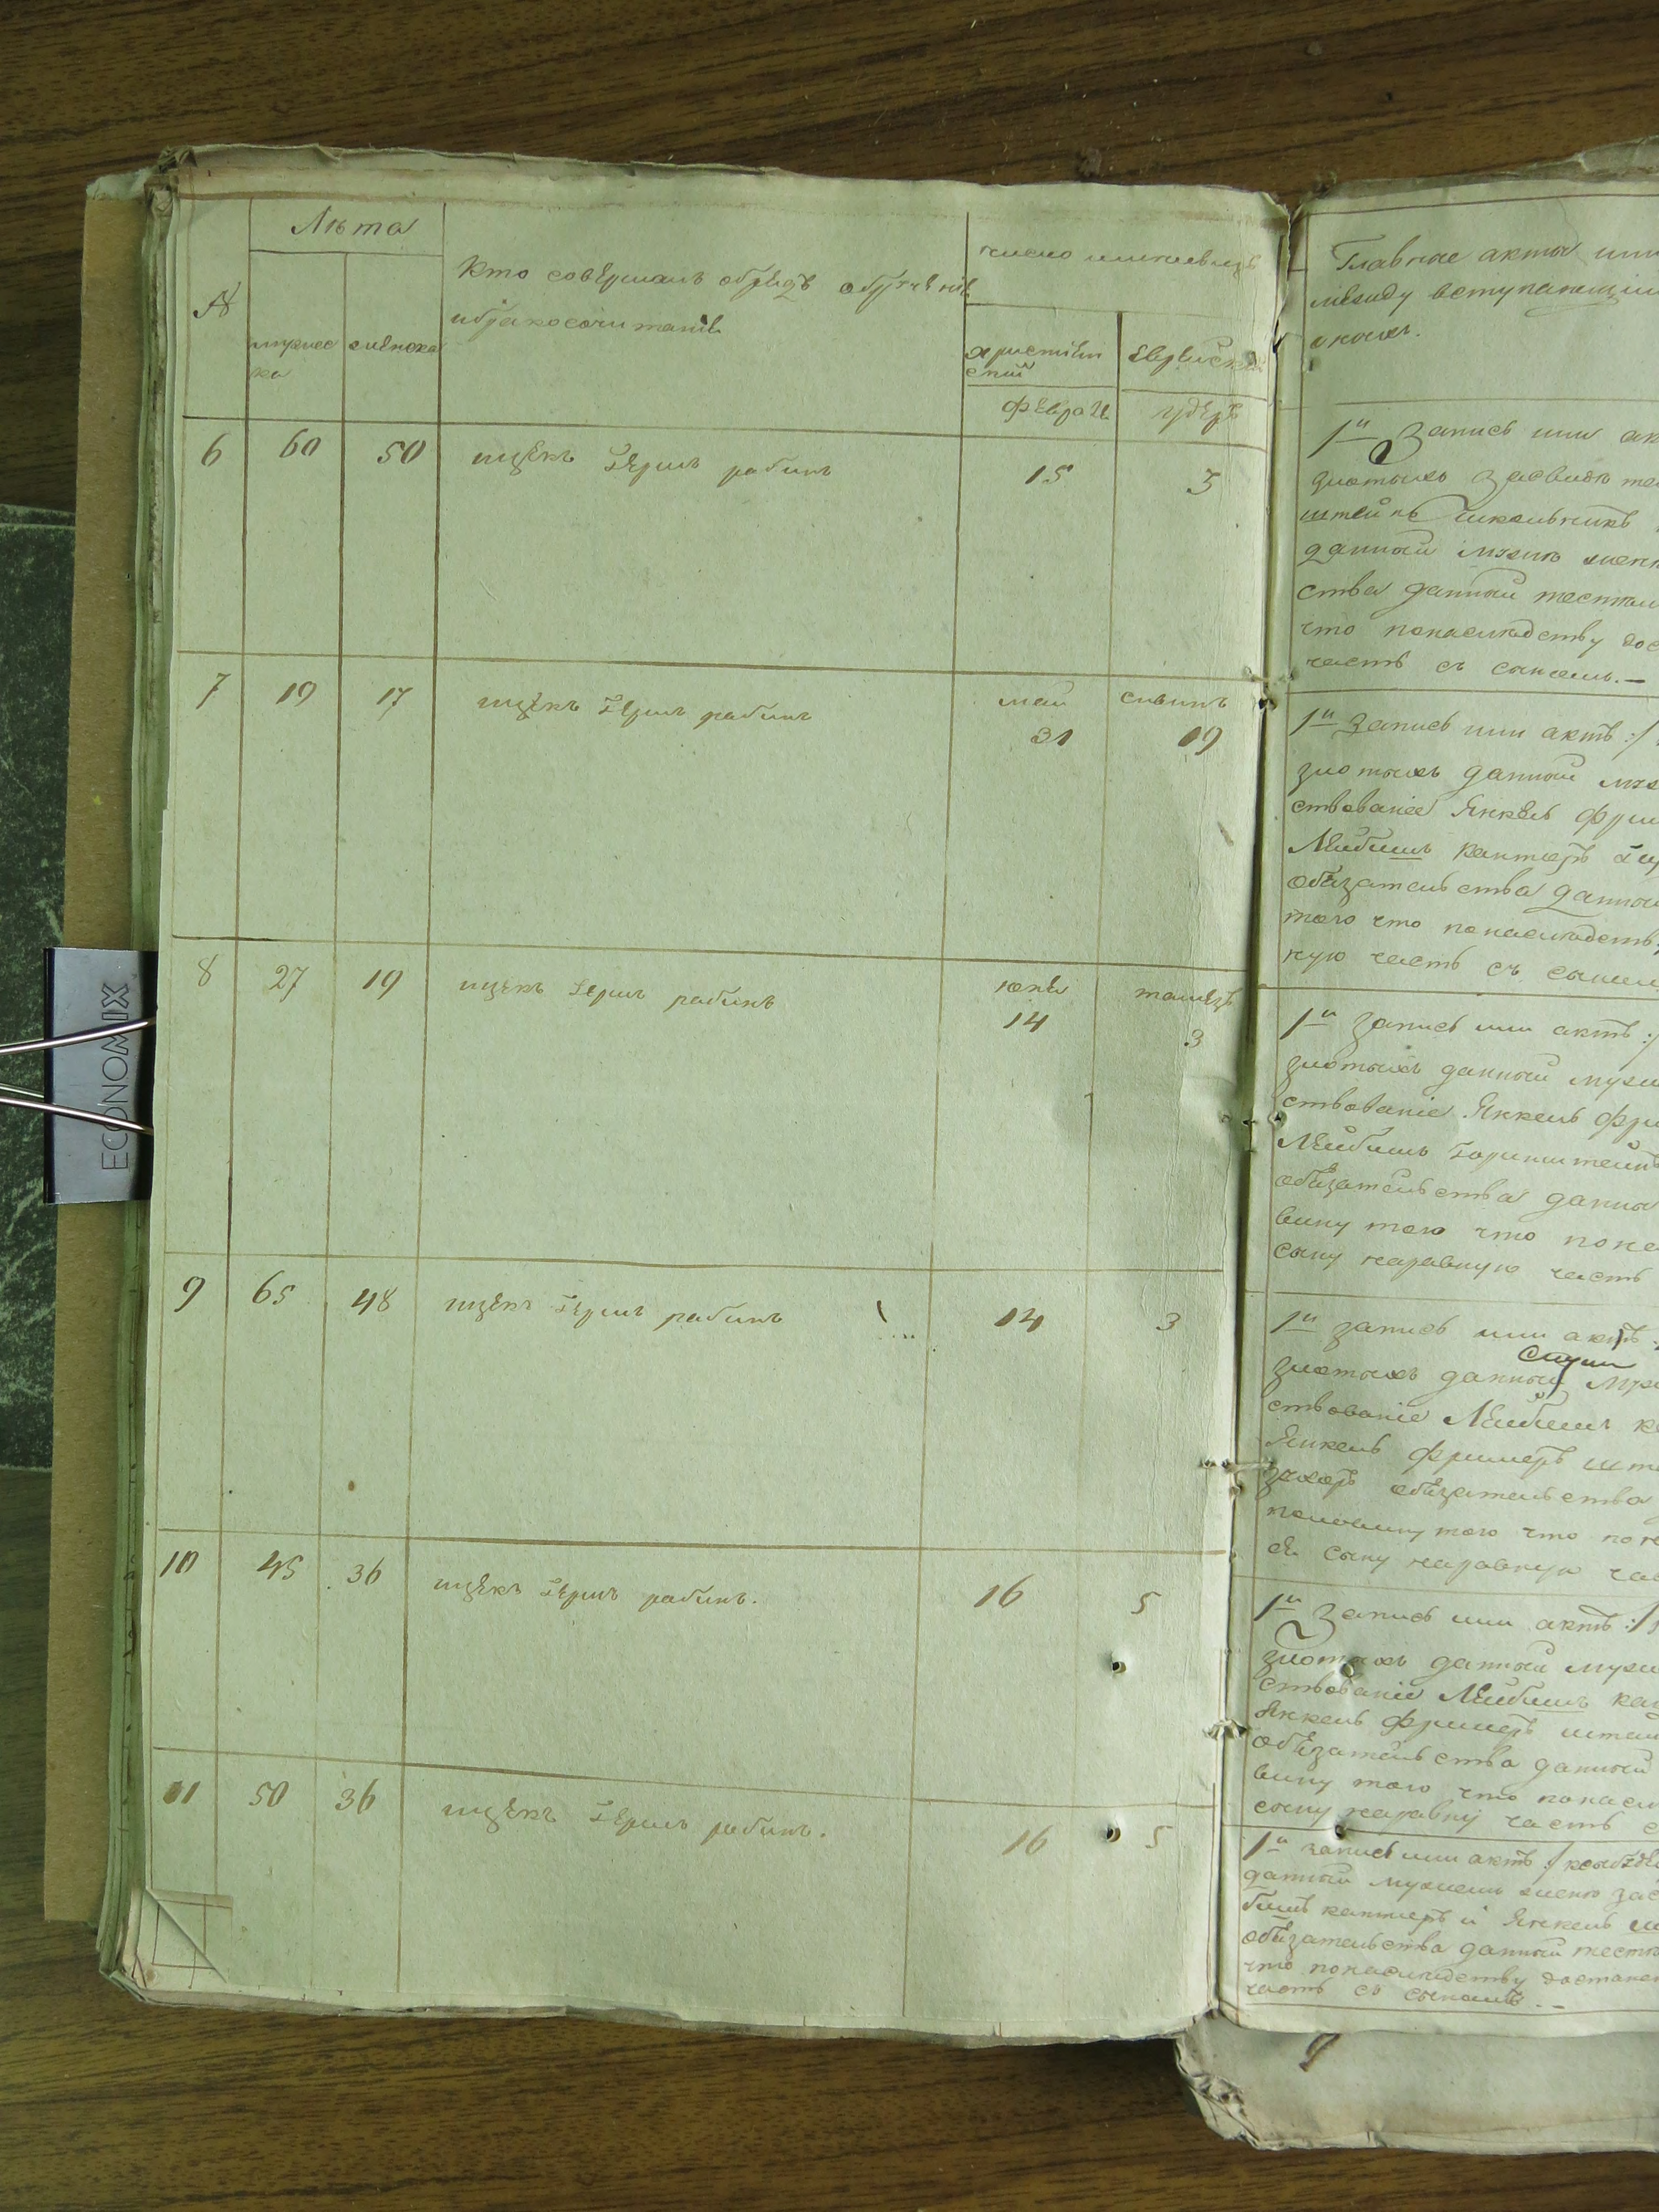 №
Лѣта
мужес
ка
женска
Кто совершалъ обрядъ обрученія
и бракосочитанія
число и месяцъ
христіян
ский
еврейский
февраля
адеръ
6 60 50 ицекъ Герш рабинъ 15 3
7 19 17 ицекъ Герш рабинъ май сивинъ
31 19
8 27 19 ицекъ Герш рабинъ юня тамузъ
14 3
9 65 48 ицекъ Герш рабинъ 14 3
10 45 36 ицекъ Герш рабинъ. 16 5
11 50 36 ицекъ Герш рабинъ. 16 5
Главные акты или
между вступающим
оными.
1й Запись или ак
злотыхъ засвидете
штейнъ школьникъ
данный мужем жен
ства данный тестем
что понаследству дос
часть съ сыномъ.—
1й запись или актъ :/
злотыхъ данный муж
ствованіе Янкель Фри
Лейбишъ Кантеръ
обязательства данны
того что понаследств
ную часть съ сыном
1й запись или актъ :/
злотыхъ данный муже
ствованіе Янкель Фри
Лейбишъ Горинштейнъ
обязательства данны
вину того что пона
сыну наравную часть
1й запись или актъ
злотыхъ данный муж
ствованіе Лейбишъ к
Янкель Фримеръ ште
обязательства
половину того что пон
сыну наравную час
1й Запись или актъ :/
злотыхъ данный муже
ствованіе Лейбишъ кан
Янкель Фримеръ штей
обязательства данный
вину того что понасл
сыну наравну часть с
1й запись или актъ :/
данный мужемъ жене зас
бишъ кантеръ и Янкель
обязательства данный тесте
что понаследству достане
часть съ сыномъ. —
ECONOMIX